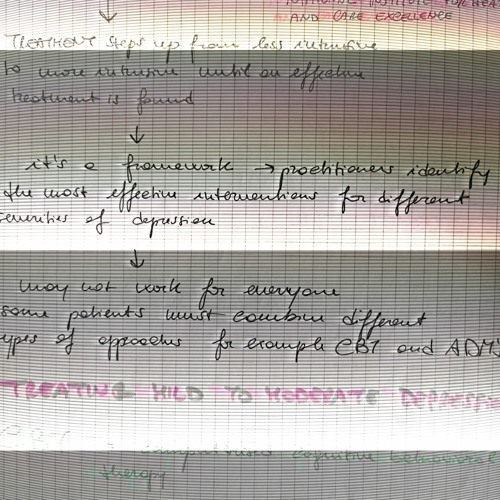 INSTITUTE FOR HEA
AND CARE EXCELLENCE
TREATMENT steps up from less intensive
to more intensive until an effective
treatment is found
it's a framework → practitioners identify
the most effective interventions for different
severities of depression
may not work for everyone
some patients must combine different
types of approaches for example CBT and ADM's
TREATING MILD TO MODERATE DEPRESSI
computerised cognitive behavioural
therapy